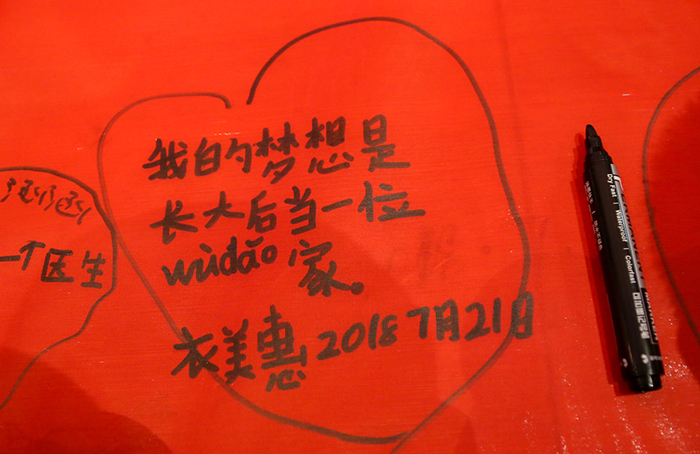 我的梦想是
长大后当一位
wǔdǎo家。
衣美惠 2018 7月21日
一个医生
Dry Fast | Waterproof | Colorfast